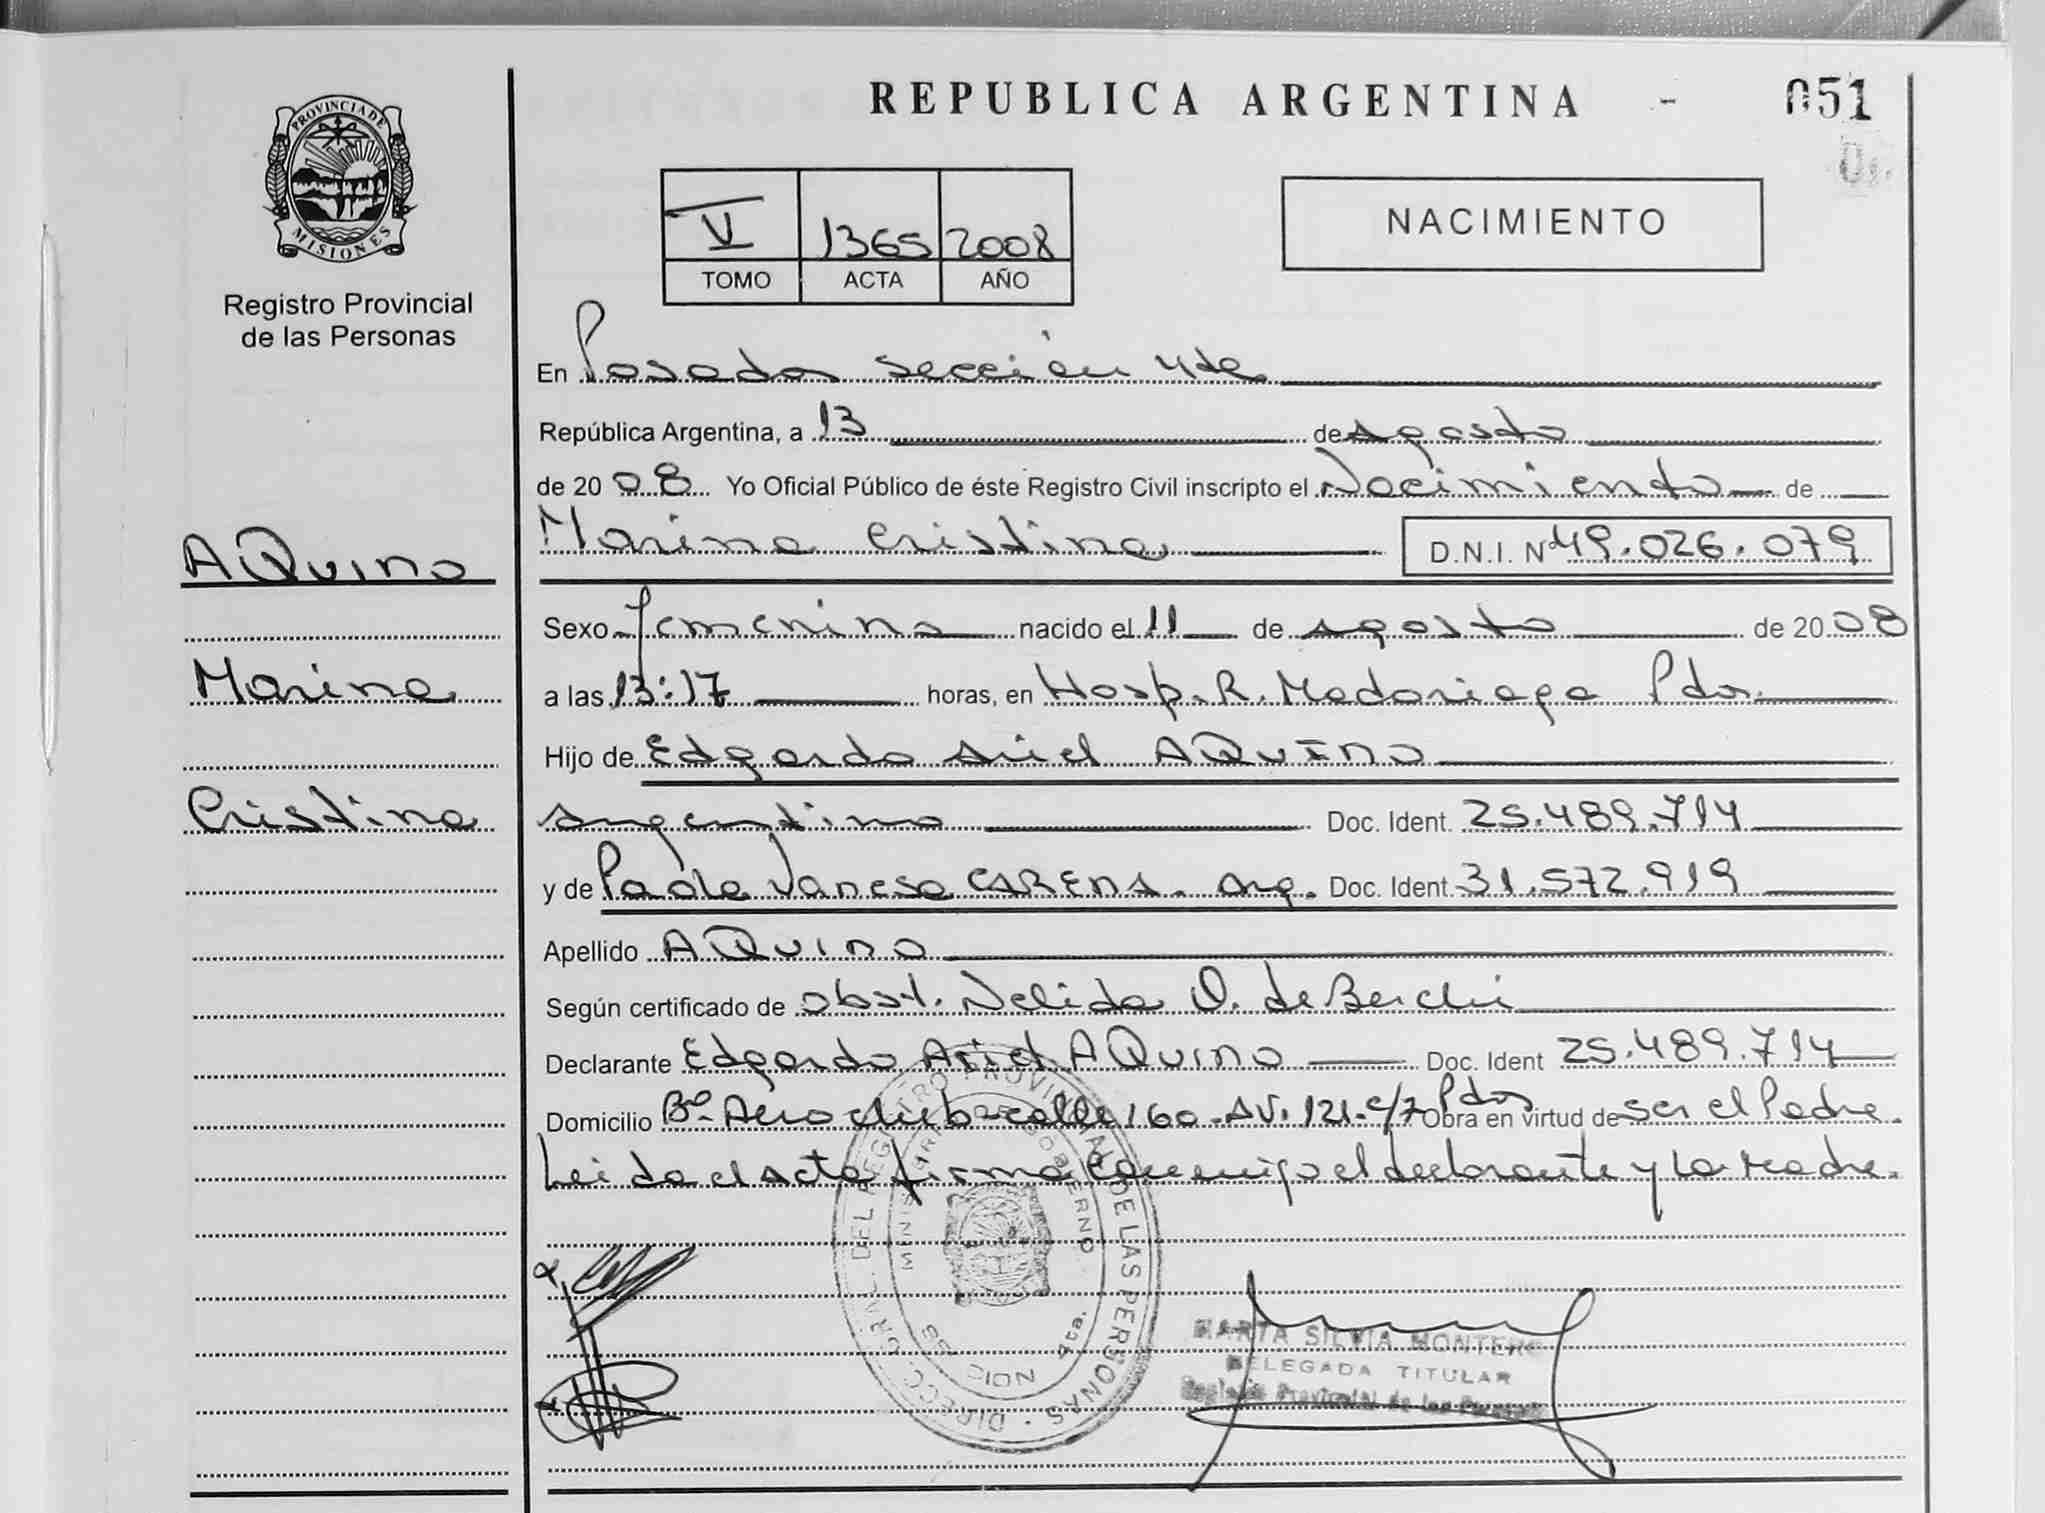 REPUBLICA ARGENTINA - 051
PROVINCIA DE
MISIONES
Registro Provincial
de las Personas
V 1365 2008
TOMO ACTA AÑO
NACIMIENTO
En Posadas sección 4ta
República Argentina, a 13 de Agosto
de 2008 Yo Oficial Público de éste Registro Civil inscripto el Nacimiento de
Marina Cristina D.N.I. Nº 49.026.079
AQuino
Marina
Cristina
Sexo Femenino nacido el 11 de Agosto de 2008
a las 13:17 horas, en Hosp. R. Madariaga Pdas.
Hijo de Edgardo Ariel AQUINO
Argentino Doc. Ident. 25.489.714
y de Paola Vanesa CARENA. Arg. Doc. Ident. 31.572.919
Apellido AQuino
Según certificado de obst. Nelida O. de Berchi
Declarante Edgardo Ariel AQuino Doc. Ident 25.489.714
Domicilio Bº Aeroclub-calle 160-AV. 121-c/7 Pdas Obra en virtud de ser el Padre
Leida el acta firma conmigo el declarante y la Madre.
DIRECC. GRAL. DEL REGISTRO PROVINCIAL DE LAS PERSONAS
GOBIERNO
4ta.
MARTA SILVIA MONTERO
DELEGADA TITULAR
Registro Provincial de las Personas